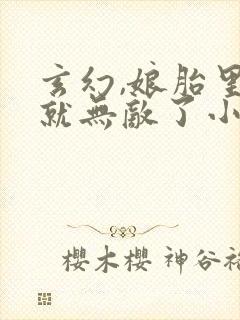 玄幻,娘胎里
就無敵了小
櫻木櫻 神谷裕